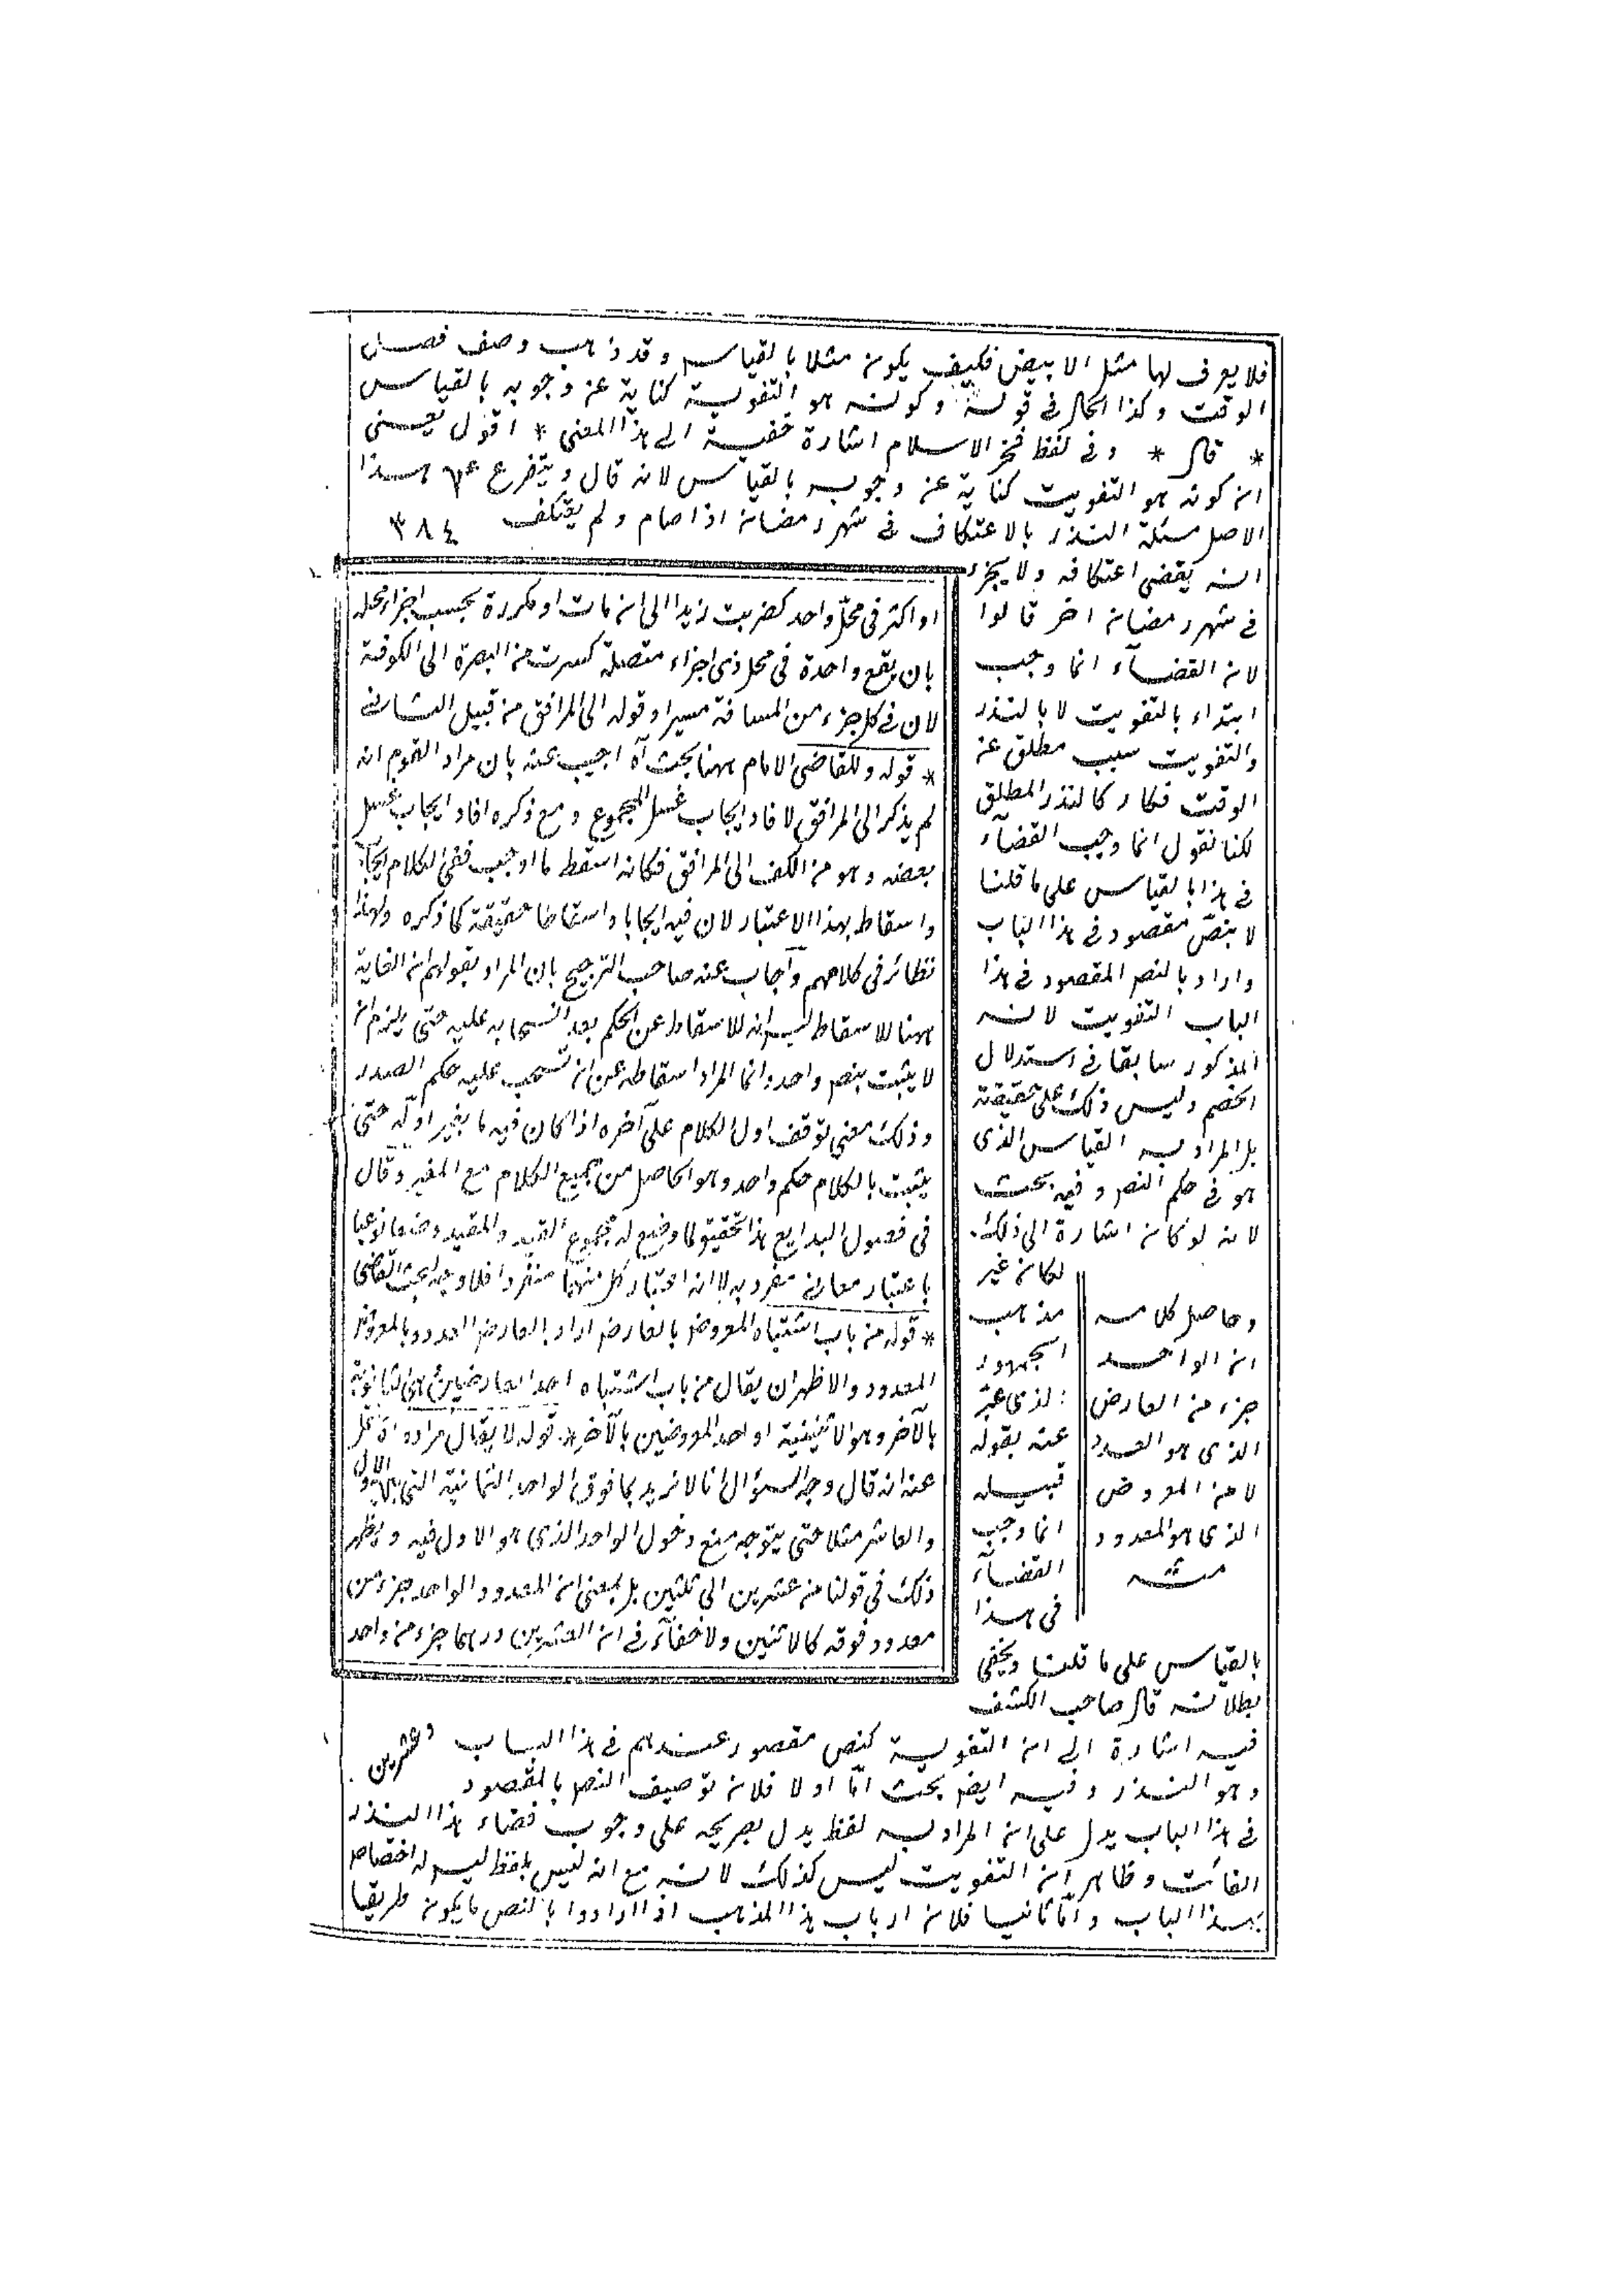 فلا يعرف لها مثل الا بيض فكيف يكون مثلا بالقياس وقد ذهب وصف فضل
الوقت وكذا الحال فى قوله وكونه هو التفويت كناية عن وجوبه بالقياس
* قال * وفى لفظ فخر الاسلام اشارة خفية الى هذا المعنى * اقول يعنى
ان كونه هو التفويت كناية عن وجوبه بالقياس لانه قال ويتفرع على هذا
الاصل مسئلة النذر بالاعتكاف فى شهر رمضان اذا صام ولم يعتكف
٣٨٤
انه يقضى اعتكافه ولا يجزء
فى شهر رمضان اخر قالوا
لان القضآء انما وجب
ابتداء بالتفويت لا بالنذر
والتفويت سبب مطلق عن
الوقت فكان كالنذر المطلق
لكنا نقول انما وجب القضآء
فى هذا بالقياس على ما قلنا
لا بنصّ مقصود فى هذا الباب
واراد بالنص المقصود فى هذا
الباب التفويت لانه
المذكور سابقا فى استدلال
الخصم وليس ذلك على حقيقته
بل المراد به القياس الذى
هو فى حكم النص وفيه بحث
لانه لو كان اشارة الى ذلك
لكان غير
مذهب
الجمهور
الذى عبّر
عنه بقوله
قبيله
انما وجب
القضآء
فى هذا
بالقياس على ما قلنا ويخفى
بطلانه قال صاحب الكشف
فيه اشارة الى ان التفويت كنص مقصود عندهم فى هذا الباب
وهو النذر وفيه ايضا بحث امّا اولا فلان توصيف النص بالمقصود
فى هذا الباب يدل على ان المراد به لفظ يدل بصريحه على وجوب قضاء هذا النذر
الفائت وظاهر ان التفويت ليس كذلك لانه مع انه ليس بلفظ ليس له اختصاص
بهذا الباب وامّا ثانيا فلان ارباب هذا المذهب اذا ارادوا بالنص ما يكون طريقا
او اكثر فى محلّ واحد كضربت زيدا الى ان مات او مكررة بحسب اجزاء محله
بان يقع واحدة فى محل ذى اجزاء متصلة كسرت من البصرة الى الكوفة
لان فى كل جزء من المسافة مسيرا وقوله الى المرافق من قبيل الثانى
* قوله وللقاضى الامام ههنا بحث آه اجيب عنه بان مراد القوم انه
لم يذكر الى المرافق لافاد ايجاب غسل المجموع ومع ذكره افاد ايجاب غسل
بعضه وهو من الكف الى المرافق فكانه اسقط ما اوجب ففى الكلام ايجاب
واسقاط بهذا الاعتبار لان فيه ايجابا واسقاطا حقيقة كما ذكره ولهذا
نظائر فى كلامهم وأجاب عنه صاحب الترجيح بان المراد بقولهم ان الغاية
ههنا للاسقاط ليس انه للاسقاط عن الحكم بعد انسحابه عليه حتى يلزم ان
لا يثبت بنص واحد وانما المراد اسقاطه عن ان تنسحب عليه حكم الصدر
وذلك معنى توقف اول الكلام على آخره اذا كان فيه ما يغير اوله حتى
يثبت بالكلام حكم واحد وهو الحاصل من جميع الكلام مع المغير وقال
فى فصول البدايع هذا تحقيق لما وضع له مجموع القيد والمقيد وضعا نوعيا
باعتبار معانى مفرديه لا انه اعتبار كل منهما منفردا فلا وجه لبحث القاضى
* قوله من باب اشتباه المعروض بالعارض اراد بالعارض العدد وبالمعروض
المعدود والاظهر ان يقال من باب اشتباه احد العارضين هى ثانوية
بالآخر وهو الاثنينية او احد المعروضين بالآخر * قوله لا يقال مراده آه نقل
عنه انه قال وجه السؤال انا لا نريد بما فوق الواحد الثمانية التى بين الاول
والعاشر مثلا حتى يتوجه منع دخول الواحد الذى هو الاول فيه ويظهر
ذلك فى قولنا من عشرين الى ثلثين بل بمعنى ان المعدود الواحد جزء من
معدود فوقه كالاثنين ولا خفآء فى ان العشرين درهما جزء من واحد
وعشرين
وحاصل كلامه
ان الواحد
جزء من العارض
الذى هو العدد
لا من المعروض
الذى هو المعدود
منه